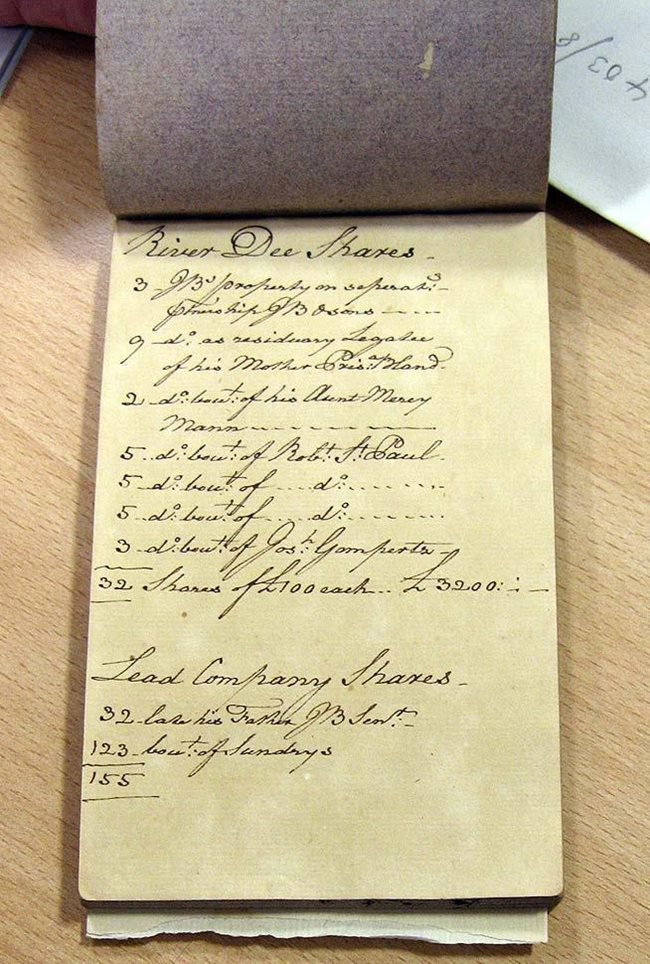 River Dee Shares -
3 - JB's property on seperate
ptnership JB & sons - - - -
9 - do. as residuary Legatee
of his Mother Prisa. Bland -
2 - do: bout: of his Aunt Mercy
Mann - - - - - - - -
5 .. do: bout: of Robt. St. Paul -
5 - do: bout: of .... do: - - - - - -
5 - do: bout: of .... do: - - - - - -
3 - do: bout: of Josh: Gompertz -
32 Shares of £100 each .. £3200: - : -
Lead Company Shares -
32 - late his Father JB Senr. -
123 - bout: of Sundrys
155
403